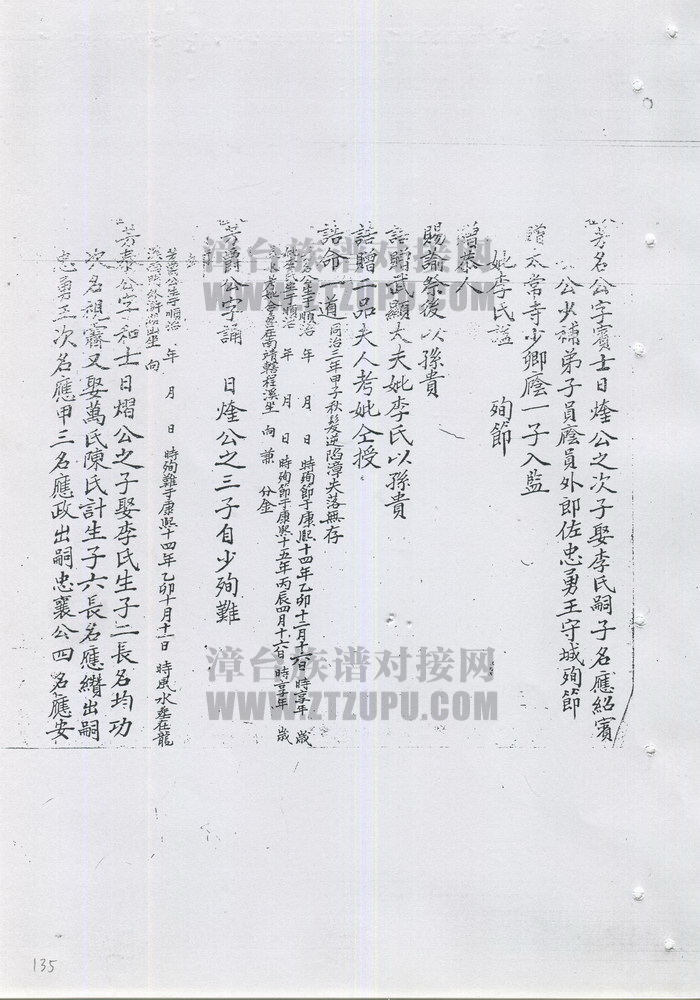 芳名公字賓士日煃公之次子娶李氏嗣子名應紹賓
公少補弟子員廕員外郎佐忠勇王守城殉節
贈太常寺少卿廕一子入監
妣李氏諡 殉節
贈恭人
賜諭祭後以孫貴
誥贈武顯大夫妣李氏以孫貴
誥贈二品夫人考妣仝授
誥命一道同治三年甲子秋髮逆陷漳失落無存
公生于順治 年 月 日 時殉節于康熙十四年乙卯十二月十六日 時享年 歲
氏生于順治 年 月 日 時殉節于康熙十五年丙辰四月十六日 時享年 歲
考妣合塟在南靖轄程溪坐 向 兼 分金
芳爵公字誦 日煃公之三子自少殉難
芳爵公生于順治 年 月 日 時殉難于康熙十四年乙卯十月十一日 時風水塟在龍
坐 向
芳泰公字和士日熠公之子娶李氏生子二長名均功
次名祖霽又娶萬氏陳氏計生子六長名應纘出嗣
忠勇王次名應甲三名應政出嗣忠襄公四名應安
漳台族谱对接网
WWW.ZTZUPU.COM
漳台族谱对接网
WWW.ZTZUPU.COM
135